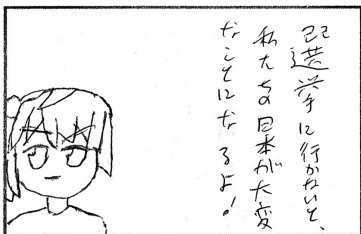 選挙に行かないと、
私たちの日本が大変
なことになるよ!